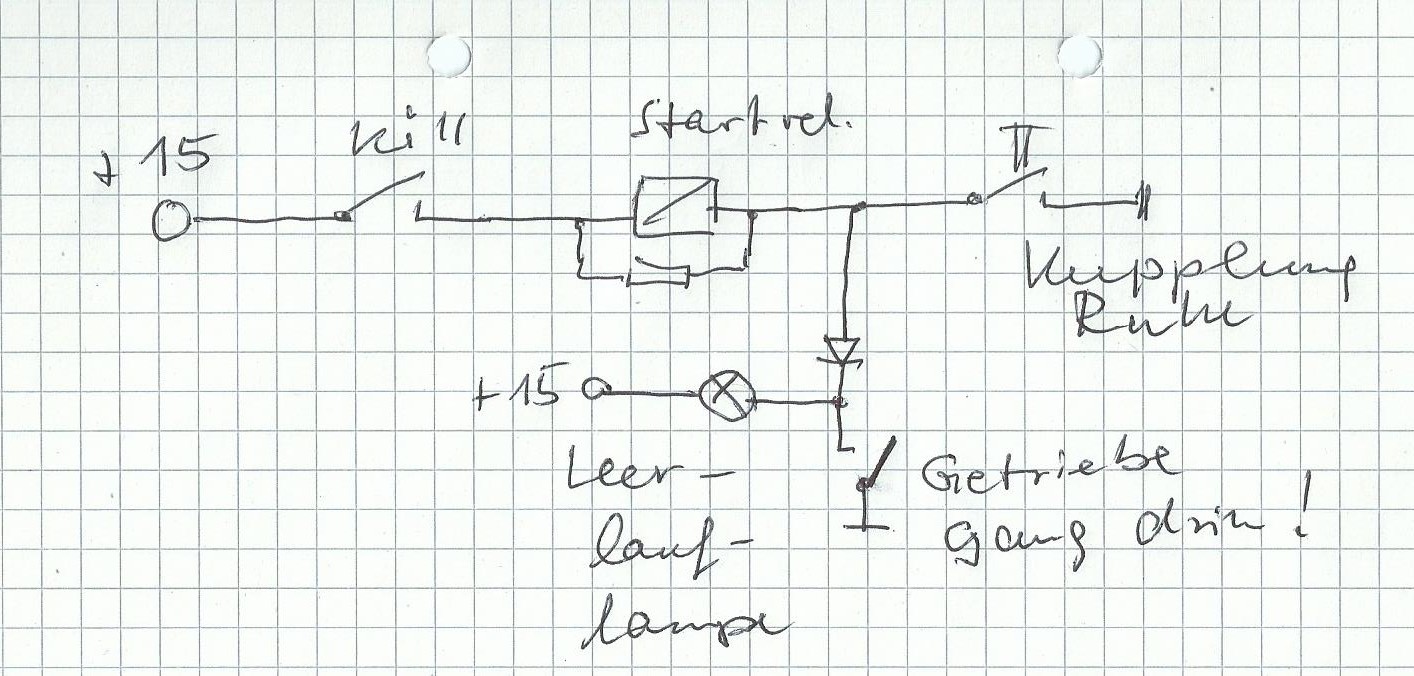 + 15
Kill
Startrel.
Kupplung
Ruhe
+15
Leer-
lauf-
lampe
Getriebe
gang drin!